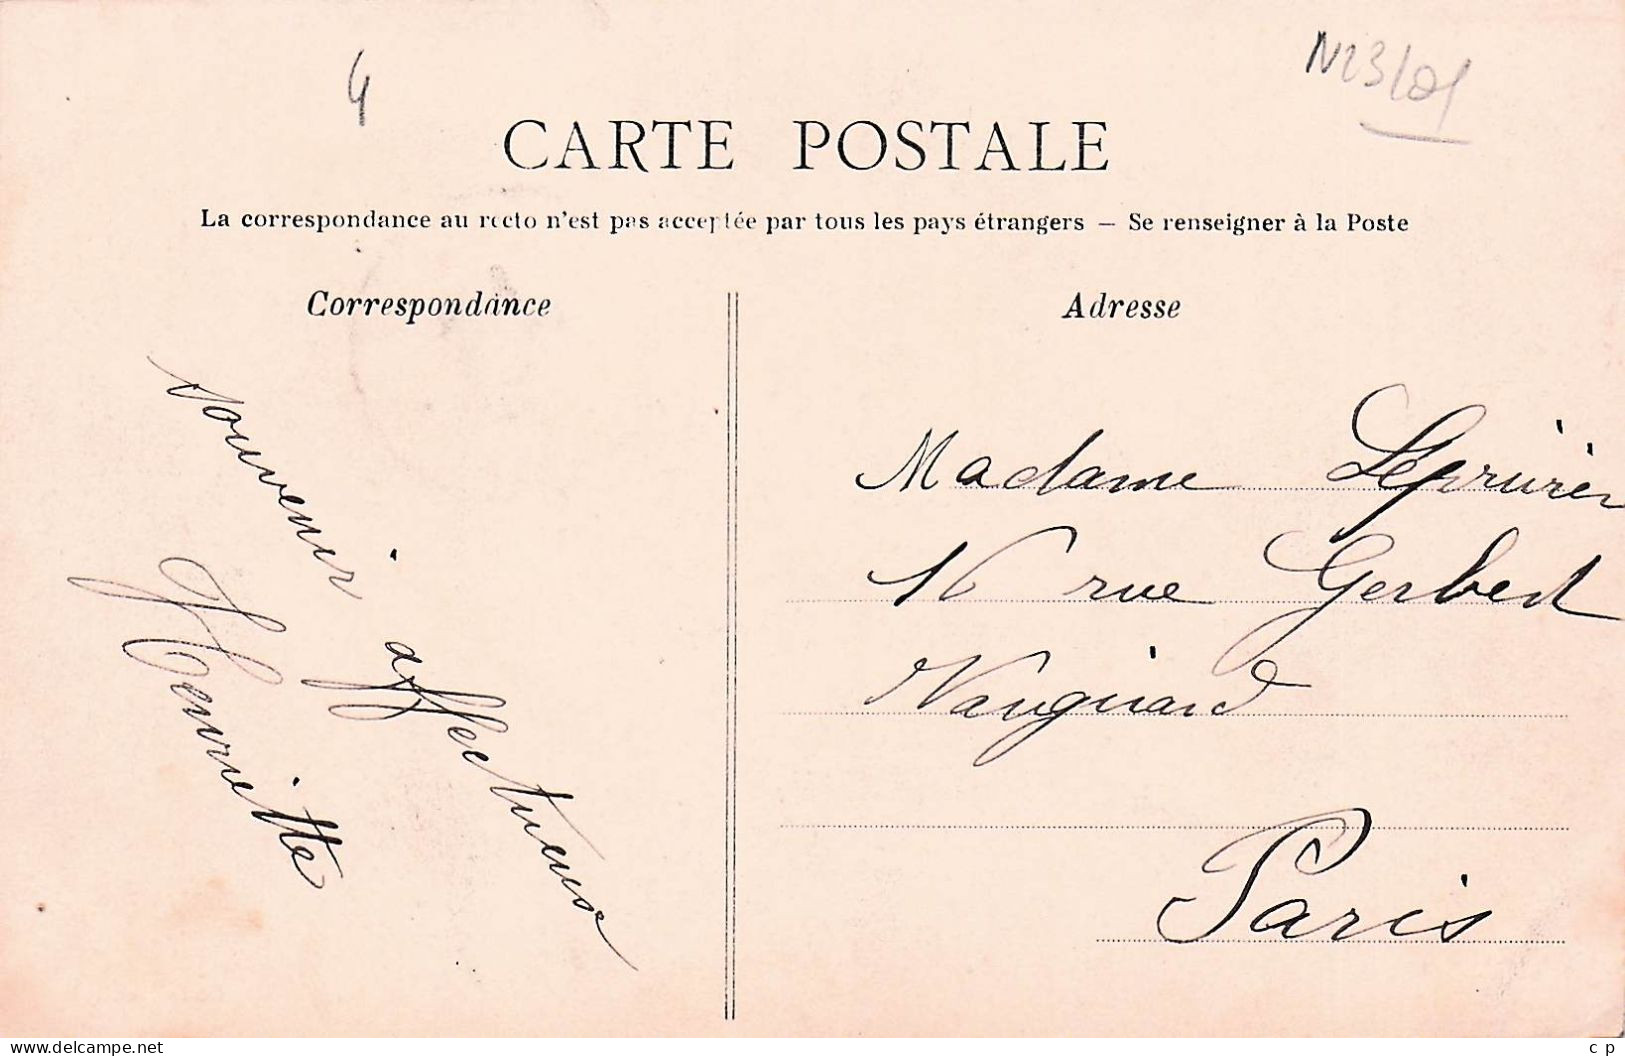 4
N23/01
CARTE POSTALE
La correspondance au recto n'est pas acceptée par tous les pays étrangers — Se renseigner à la Poste
Correspondance
souvenir affectueux
Henriette
Adresse
Madame
16 rue Gerbert
Vaugirard
Paris
www.delcampe.net
c p